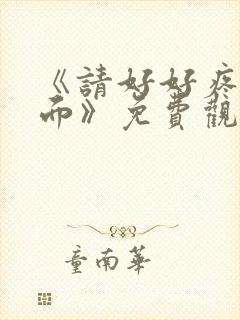 《請好好疼
而》免費觀
童南華